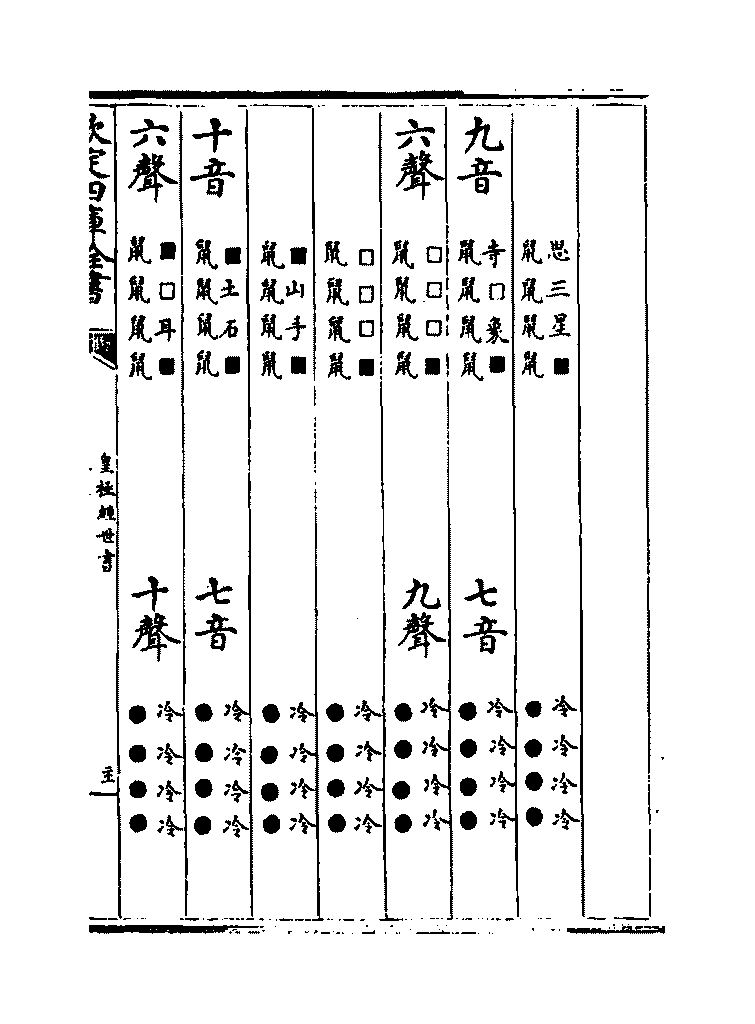 思三星■
鼠鼠鼠鼠
冷冷冷冷
●●●●
九音
寺□象■
鼠鼠鼠鼠
七音
冷冷冷冷
●●●●
六聲
□□□■
鼠鼠鼠鼠
九聲
冷冷冷冷
●●●●
□□□■
鼠鼠鼠鼠
冷冷冷冷
●●●●
■山手■
鼠鼠鼠鼠
冷冷冷冷
●●●●
十音
■土石■
鼠鼠鼠鼠
七音
冷冷冷冷
●●●●
六聲
■□耳■
鼠鼠鼠鼠
十聲
冷冷冷冷
●●●●
欽定四庫全書
皇極經世書